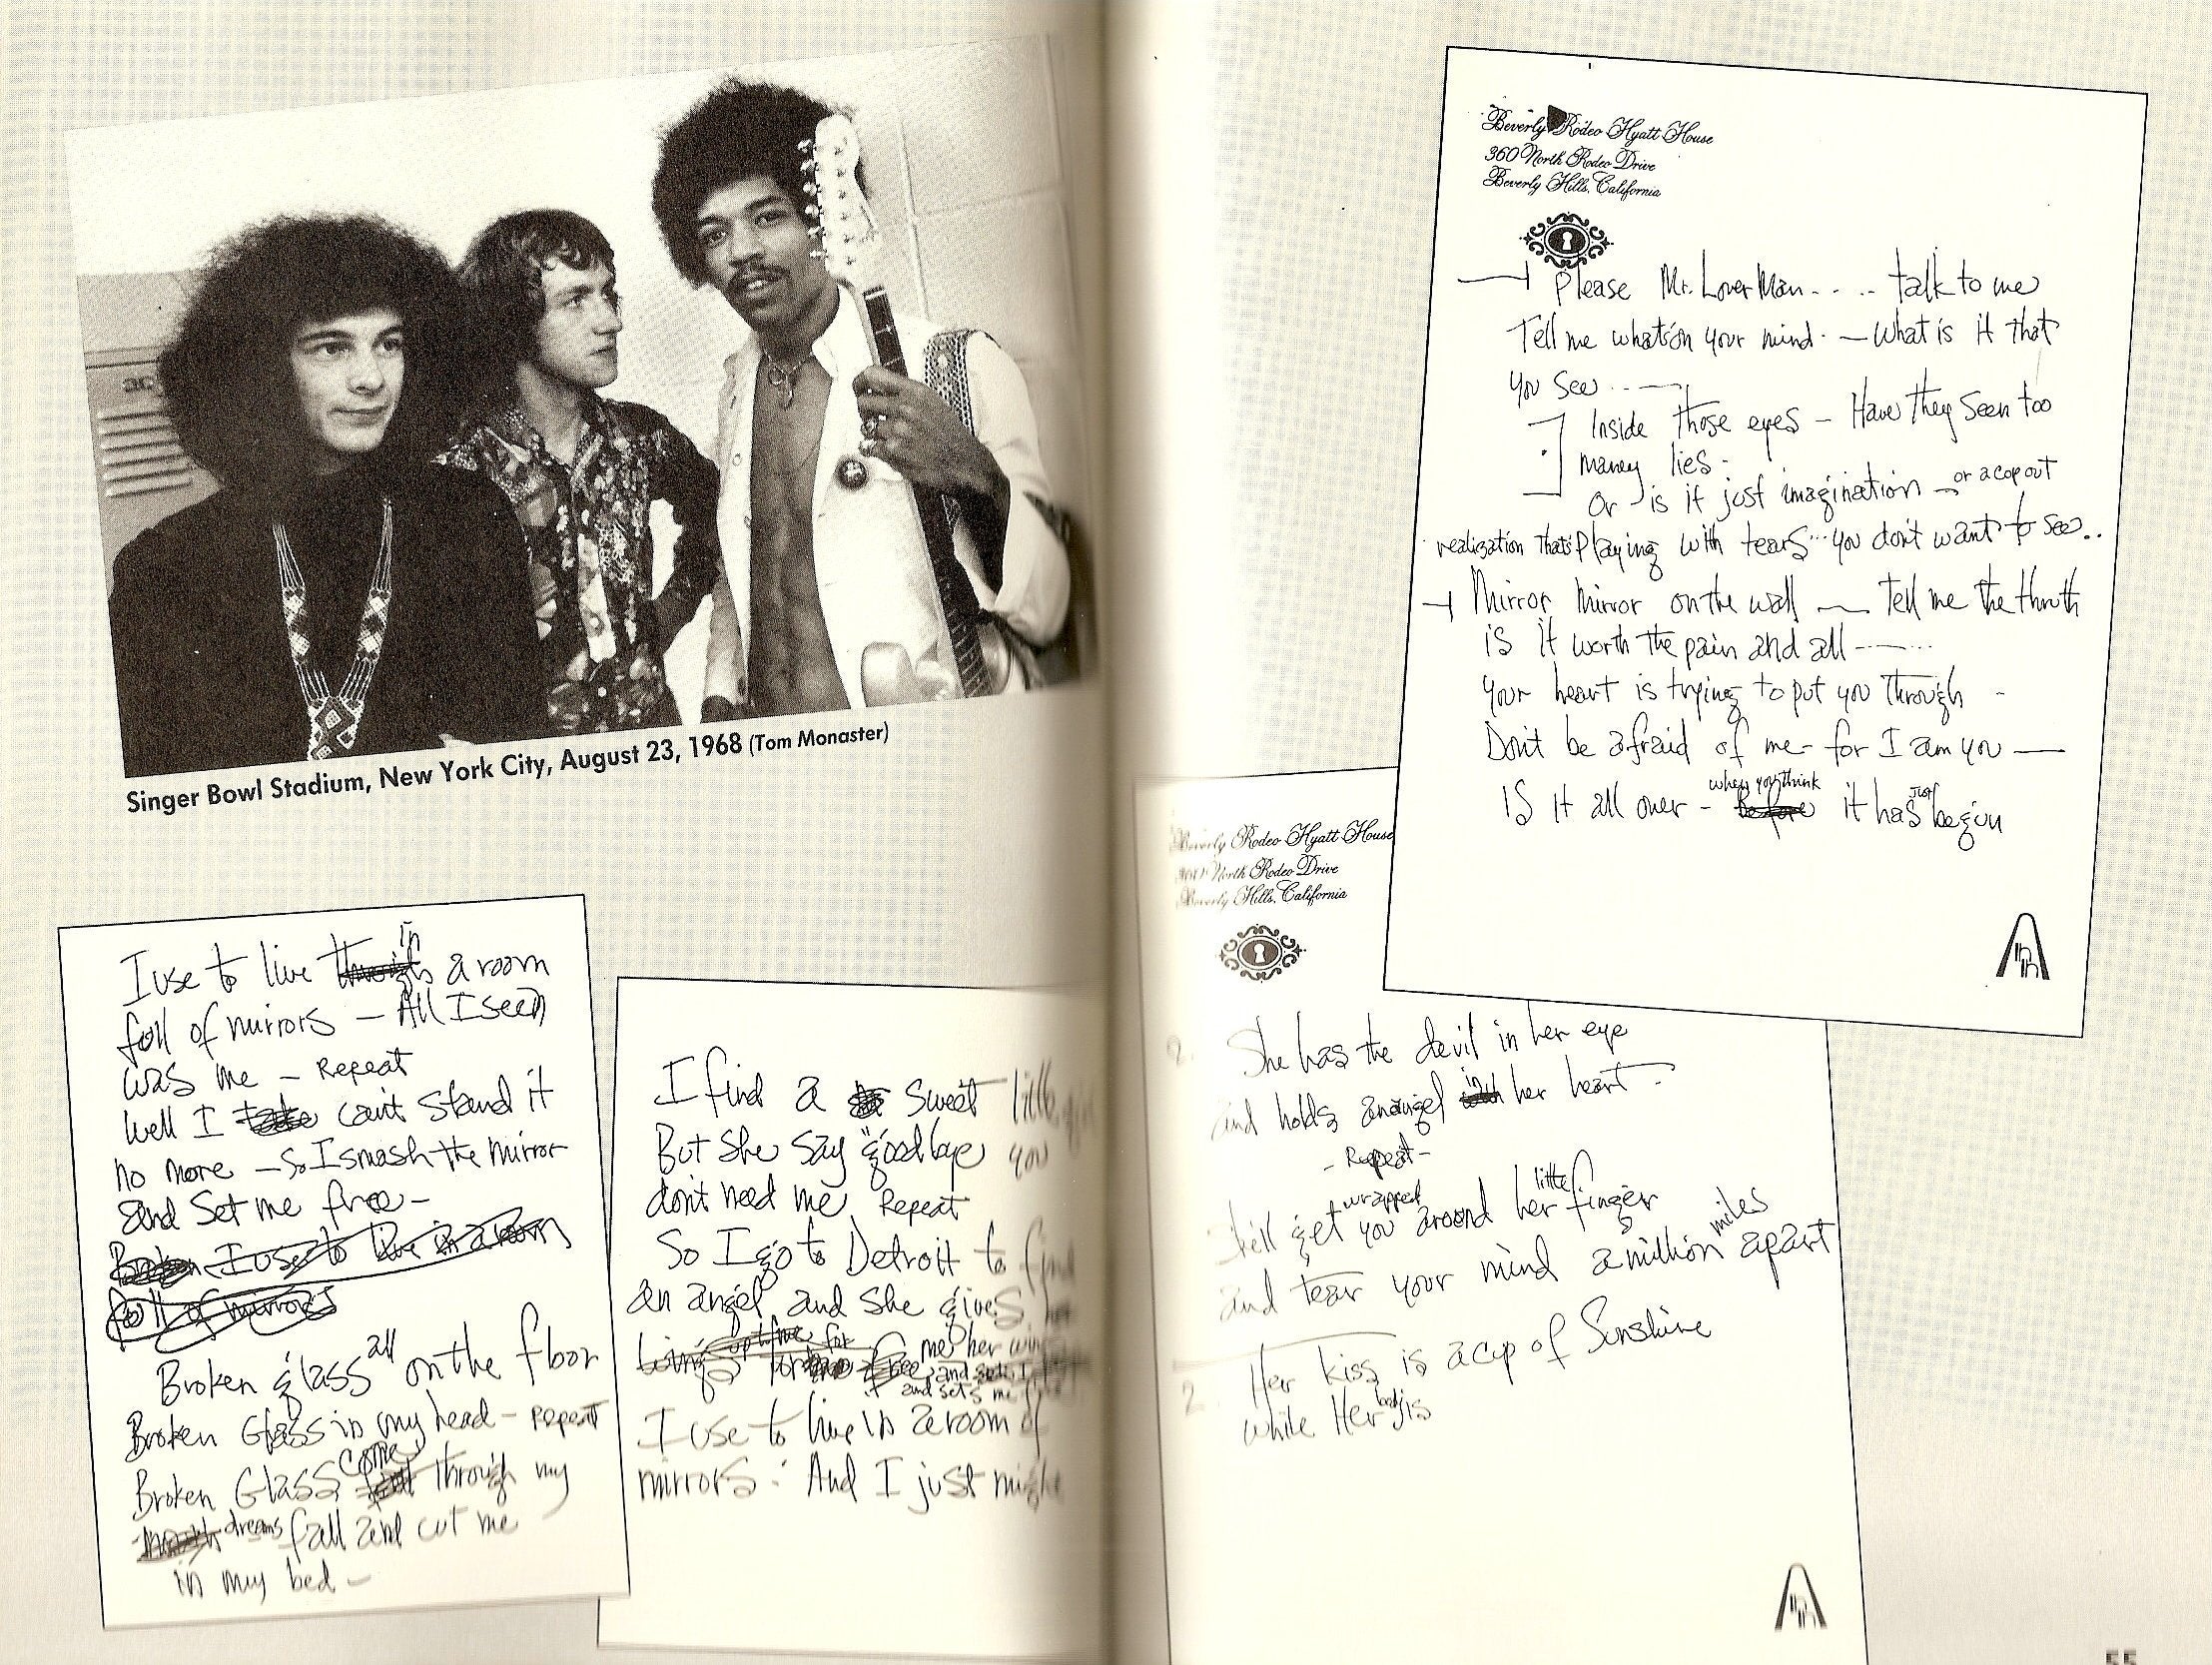 Singer Bowl Stadium, New York City, August 23, 1968 (Tom Monaster)
I use to live through in a room
full of mirrors – All I seen
was me – Repeat
Well I take can't stand it
no more – So I smash the mirror
and set me free –
Broken I use to live in a room
full of mirrors
Broken glass all on the floor
Broken Glass in my head – repeat
Broken Glass come through my
dreams fall and cut me
in my bed –
I find a sweet little girl
But she say "goodbye you
don't need me Repeat
So I go to Detroit to find
an angel and she gives
me her wings
and sets me
I use to live in a room of
mirrors : And I just might
Beverly Rodeo Hyatt House
360 North Rodeo Drive
Beverly Hills, California
Please Mr. Lover Man . . . . . talk to me
Tell me what's on your mind. – What is it that
you see . . . —
Inside those eyes – Have they seen too
maney lies –
Or is it just imagination – or a cop out
realization that's playing with tears ... you don't want to see..
Mirror Mirror on the wall — Tell me the thruth
is it worth the pain and all -------
your heart is trying to put you through -
Don't be afraid of me – for I am you —
when you think
IS it all over – before it has just begun
Inn
Beverly Rodeo Hyatt House
360 North Rodeo Drive
Beverly Hills, California
2. She has the devil in her eye
and holds an angel in her heart –
- Repeat -
wrapped little
She'll get you around her finger
and tear your mind a million miles apart
2. Her kiss is a cup of Sunshine
while Her body is
Inn
55